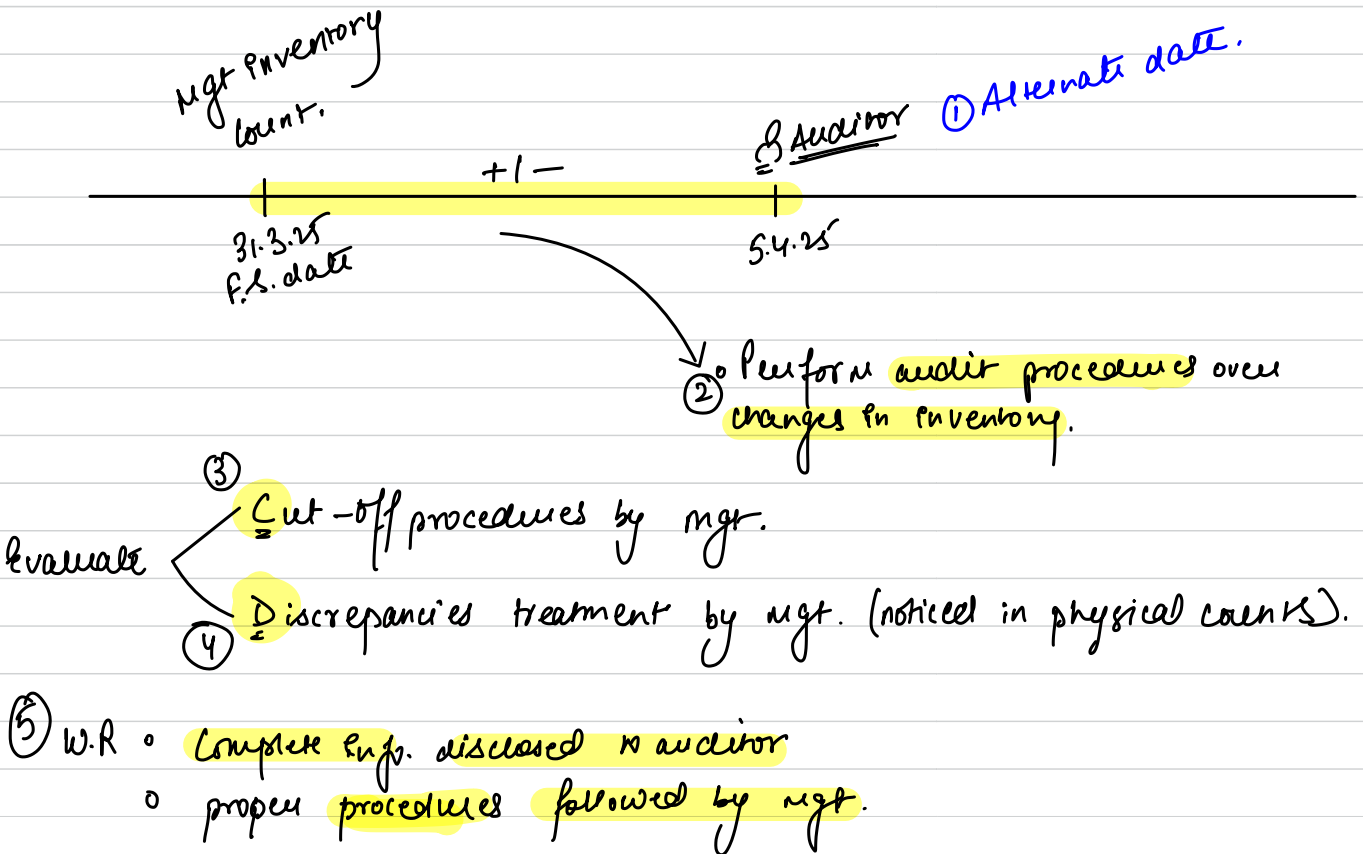 Mgt inventory
count.
Auditor
① Alternate date.
+/-
31.3.25
F.S. date
5.4.25
② Perform audit procedures over
changes in inventory.
③
Cut-off procedures by mgt.
Evaluate
Discrepancies treatment by mgt. (noticed in physical counts).
④
⑤ W.R • Complete info. disclosed to auditor
• proper procedures followed by mgt.